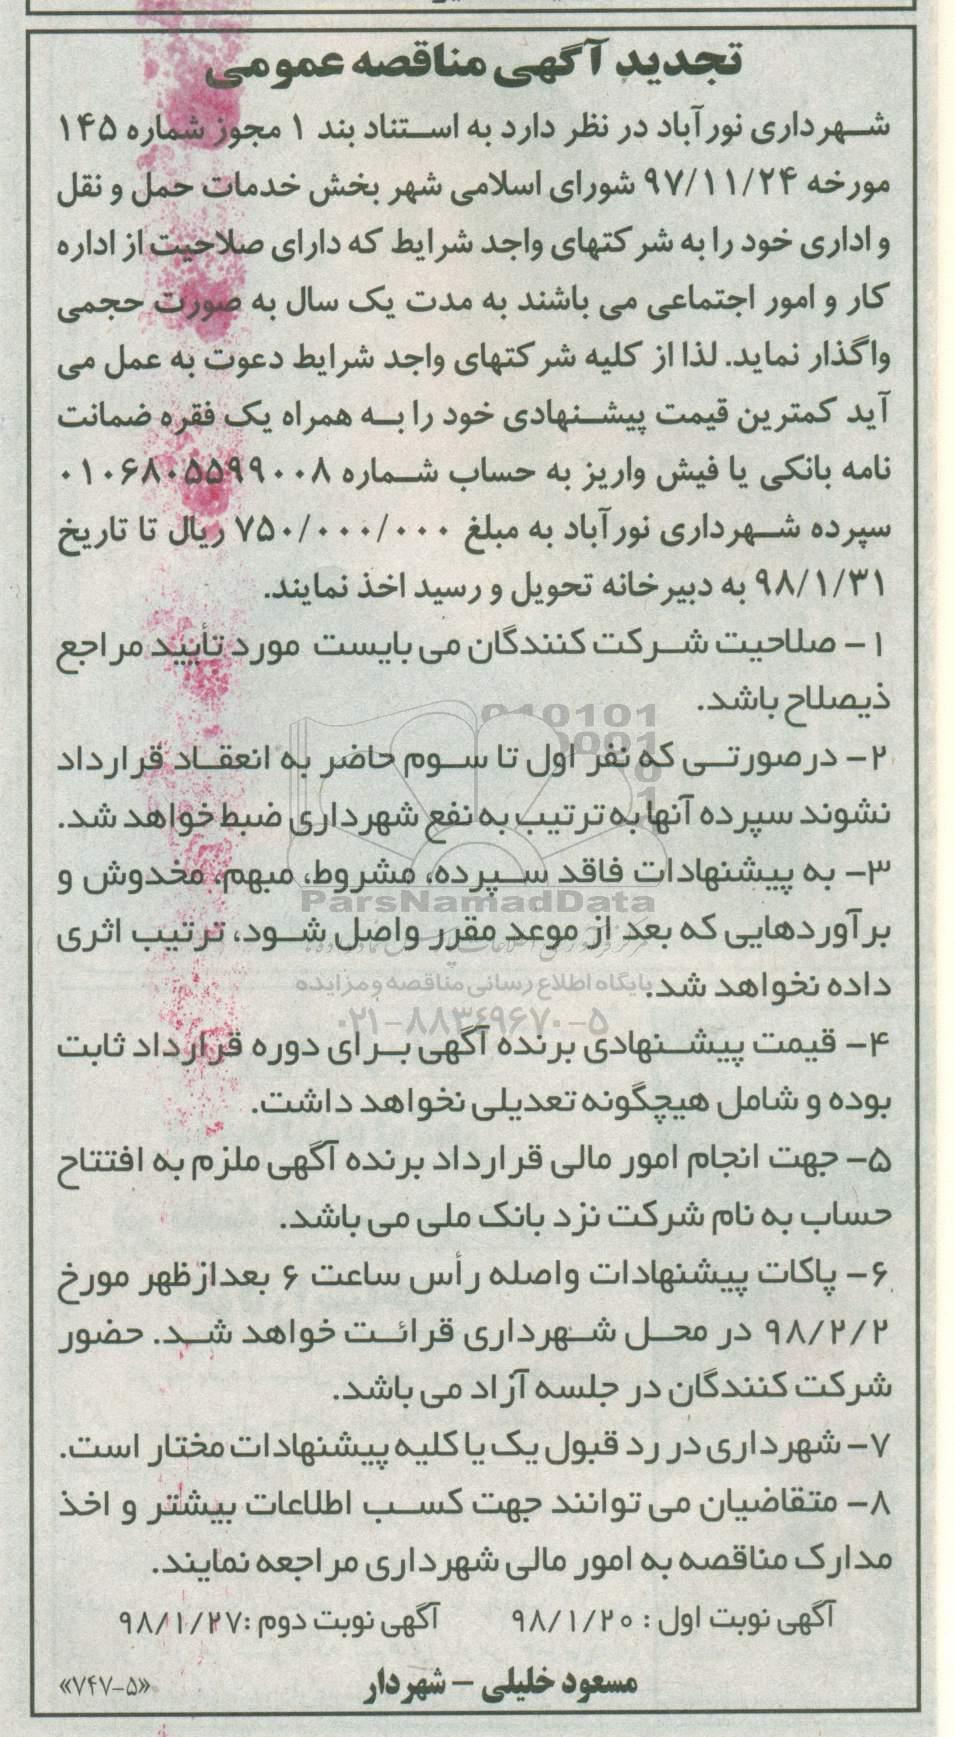 تجدید آگهی مناقصه عمومی
شهرداری نورآباد در نظر دارد به استناد بند ۱ مجوز شماره ۱۴۵
مورخه ۹۷/۱۱/۲۴ شورای اسلامی شهر بخش خدمات حمل و نقل
و اداری خود را به شرکتهای واجد شرایط که دارای صلاحیت از اداره
کار و امور اجتماعی می باشند به مدت یک سال به صورت حجمی
واگذار نماید. لذا از کلیه شرکتهای واجد شرایط دعوت به عمل می
آید کمترین قیمت پیشنهادی خود را به همراه یک فقره ضمانت
نامه بانکی یا فیش واریز به حساب شماره ۰۱۰۶۸۰۵۵۹۹۰۰۸
سپرده شهرداری نورآباد به مبلغ ۷۵۰/۰۰۰/۰۰۰ ریال تا تاریخ
۹۸/۱/۳۱ به دبیرخانه تحویل و رسید اخذ نمایند.
۱- صلاحیت شرکت کنندگان می بایست مورد تأیید مراجع
ذیصلاح باشد.
۲- درصورتی که نفر اول تا سوم حاضر به انعقاد قرارداد
نشوند سپرده آنها به ترتیب به نفع شهرداری ضبط خواهد شد.
۳- به پیشنهادات فاقد سپرده، مشروط، مبهم، مخدوش و
برآوردهایی که بعد از موعد مقرر واصل شود، ترتیب اثری
داده نخواهد شد.
۴- قیمت پیشنهادی برنده آگهی برای دوره قرارداد ثابت
بوده و شامل هیچگونه تعدیلی نخواهد داشت.
۵- جهت انجام امور مالی قرارداد برنده آگهی ملزم به افتتاح
حساب به نام شرکت نزد بانک ملی می باشد.
۶- پاکات پیشنهادات واصله رأس ساعت ۶ بعدازظهر مورخ
۹۸/۲/۲ در محل شهرداری قرائت خواهد شد. حضور
شرکت کنندگان در جلسه آزاد می باشد.
۷- شهرداری در رد قبول یک یا کلیه پیشنهادات مختار است.
۸- متقاضیان می توانند جهت کسب اطلاعات بیشتر و اخذ
مدارک مناقصه به امور مالی شهرداری مراجعه نمایند.
آگهی نوبت اول : ۹۸/۱/۲۰ آگهی نوبت دوم :۹۸/۱/۲۷
مسعود خلیلی - شهردار
«۷۴۷-۵»
ParsNamadData
پایگاه اطلاع رسانی مناقصه و مزایده
۰۲۱-۸۸۳۴۹۶۷۰-۵